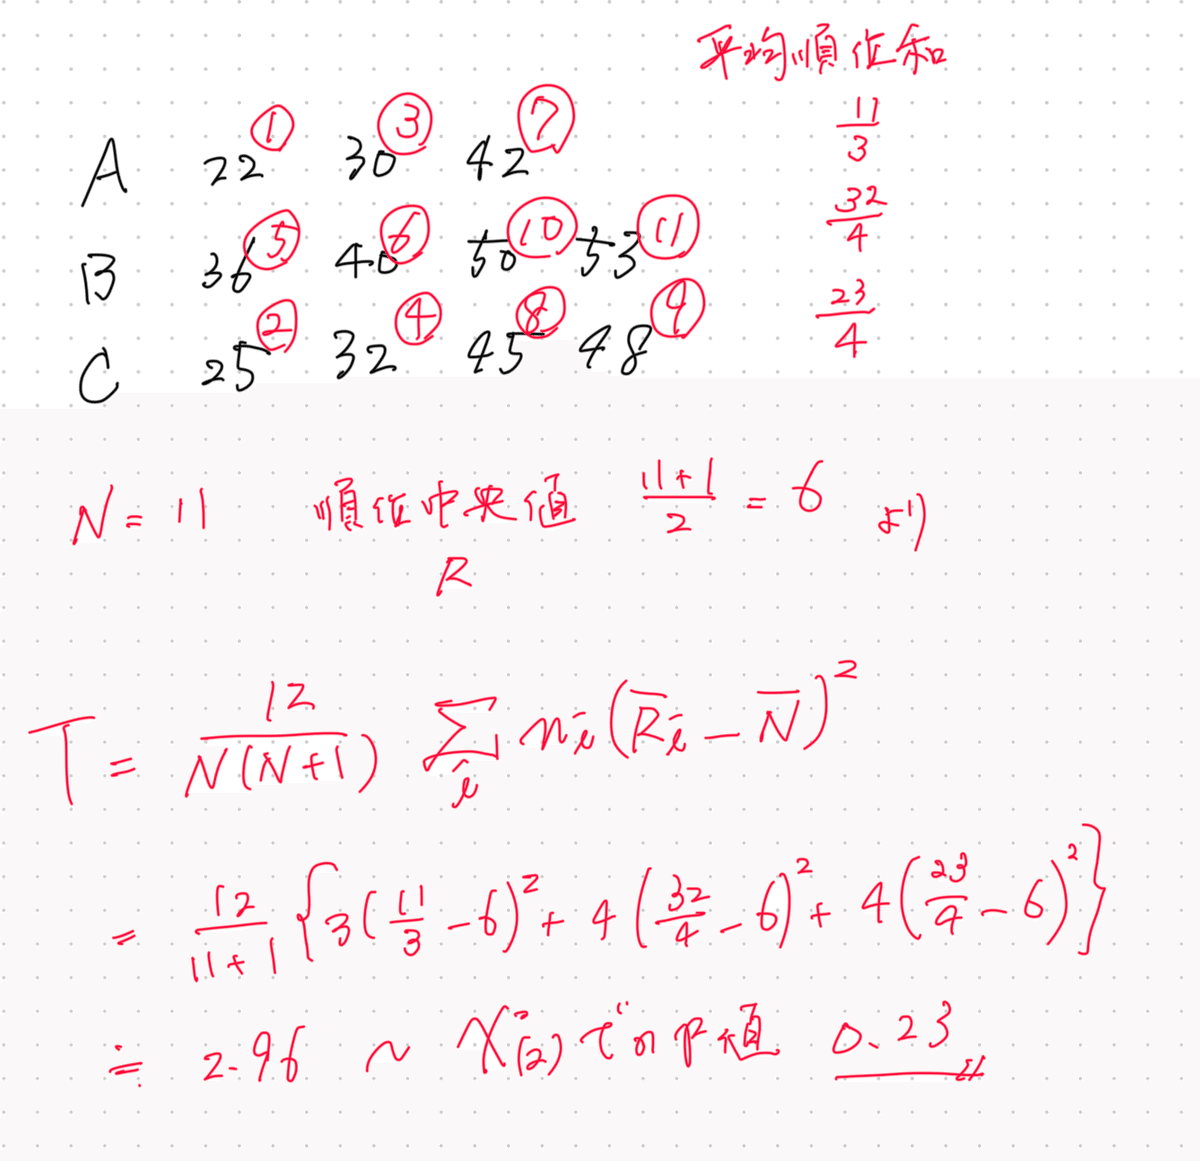 平均順位和
A 22 ① 30 ③ 42 ⑦ 11/3
B 36 ⑤ 40 ⑥ 50 ⑩ 53 ⑪ 32/4
C 25 ② 32 ④ 45 ⑧ 48 ⑨ 23/4
N = 11 順位中央値 (11+1)/2 = 6 より
R
T = 12/(N(N+1)) Σ_i n_i (R̅_i − N̅)²
= 12/(11+1) {3(11/3 − 6)² + 4(32/4 − 6)² + 4(23/4 − 6)²}
≒ 2.96 ~ χ²(2) での P値 0.23